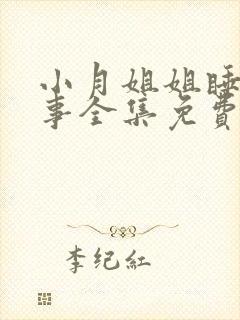 小月姐姐睡
事全集免費
李纪紅